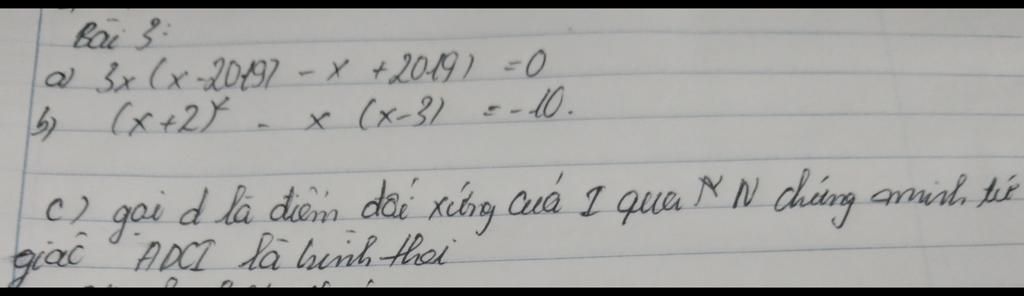 Bài 3:
a) 3x (x-2019) - x + 2019) = 0
b) (x+2)² - x (x-3) = -10.
c) gọi d là điểm đối xứng của I qua N chứng minh tứ
giác ADCI là hình thoi